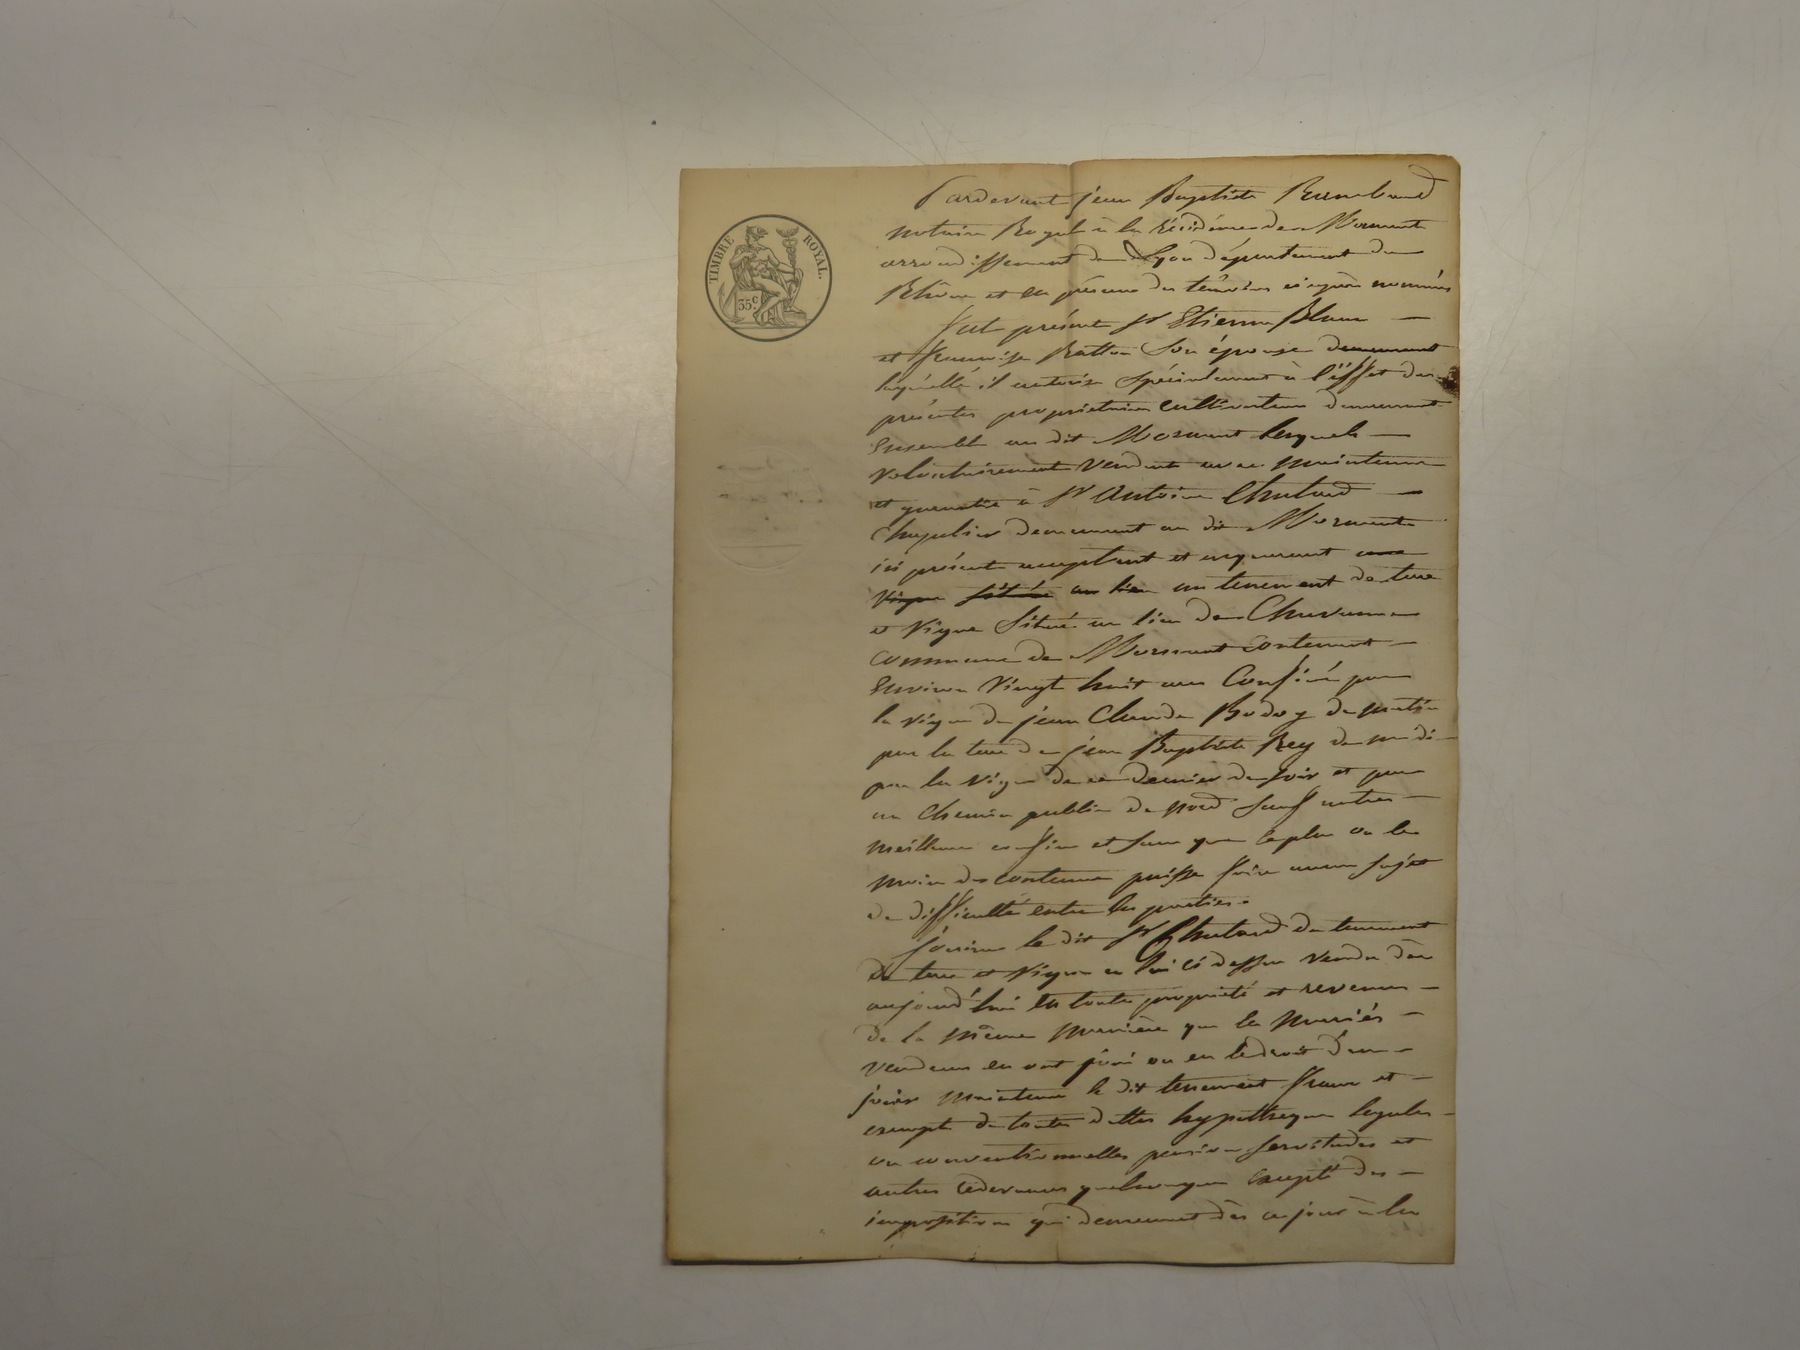 TIMBRE ROYAL.
35 c
Pardevant jean Baptiste
notaire Royal à la résidence de Mornant
arrondissement de Lyon département du
Rhône et en présence des témoins ci après nommés
fut présent Sr Etienne Blanc
et françoise Ratton Son épouse demeurant
laquelle il autorise Spécialement à l'éffet des
présentes propriétaires cultivateurs demeurant
Ensemble au dit Mornant lesquels
volontairement vendent avec maintenue
et garantie à Sr Antoine Chatard
Chapelier demeurant au dit Mornant
ici présent acceptant et acquerant une
Vigne située au lieu un tenement de terre
et Vigne Situé au lieu de
commune de Mornant contenant
Environ Vingt huit ares Confiné par
la vigne de jean Claude de matin
par la terre de jean Baptiste Rey de midi
par la vigne de ce dernier de soir et par
un chemin public de nord sauf autres
meilleurs confins et sans que le plus ou le
moins de contenue puisse faire aucun sujet
de difficulté entre les parties.
jouira le dit Sr Chatard du tenement
de terre et vigne a lui ci dessus vendu dès
aujourd'hui en toute propriété et revenus
de la même manière que les mariés
vendeurs en ont joui ou eu le droit d'en
jouir maintenu le dit tenement franc et
exempt de toutes dettes hypotheques legales
ou conventionnelles pension servitudes et
autres redevances quelconques Excepté des
impositions qui demeurent dès ce jour à la